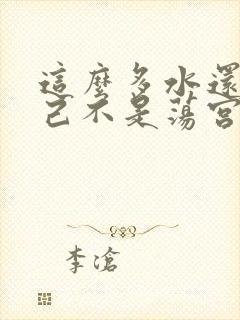 這麼多水還
己不是蕩宮
李滄